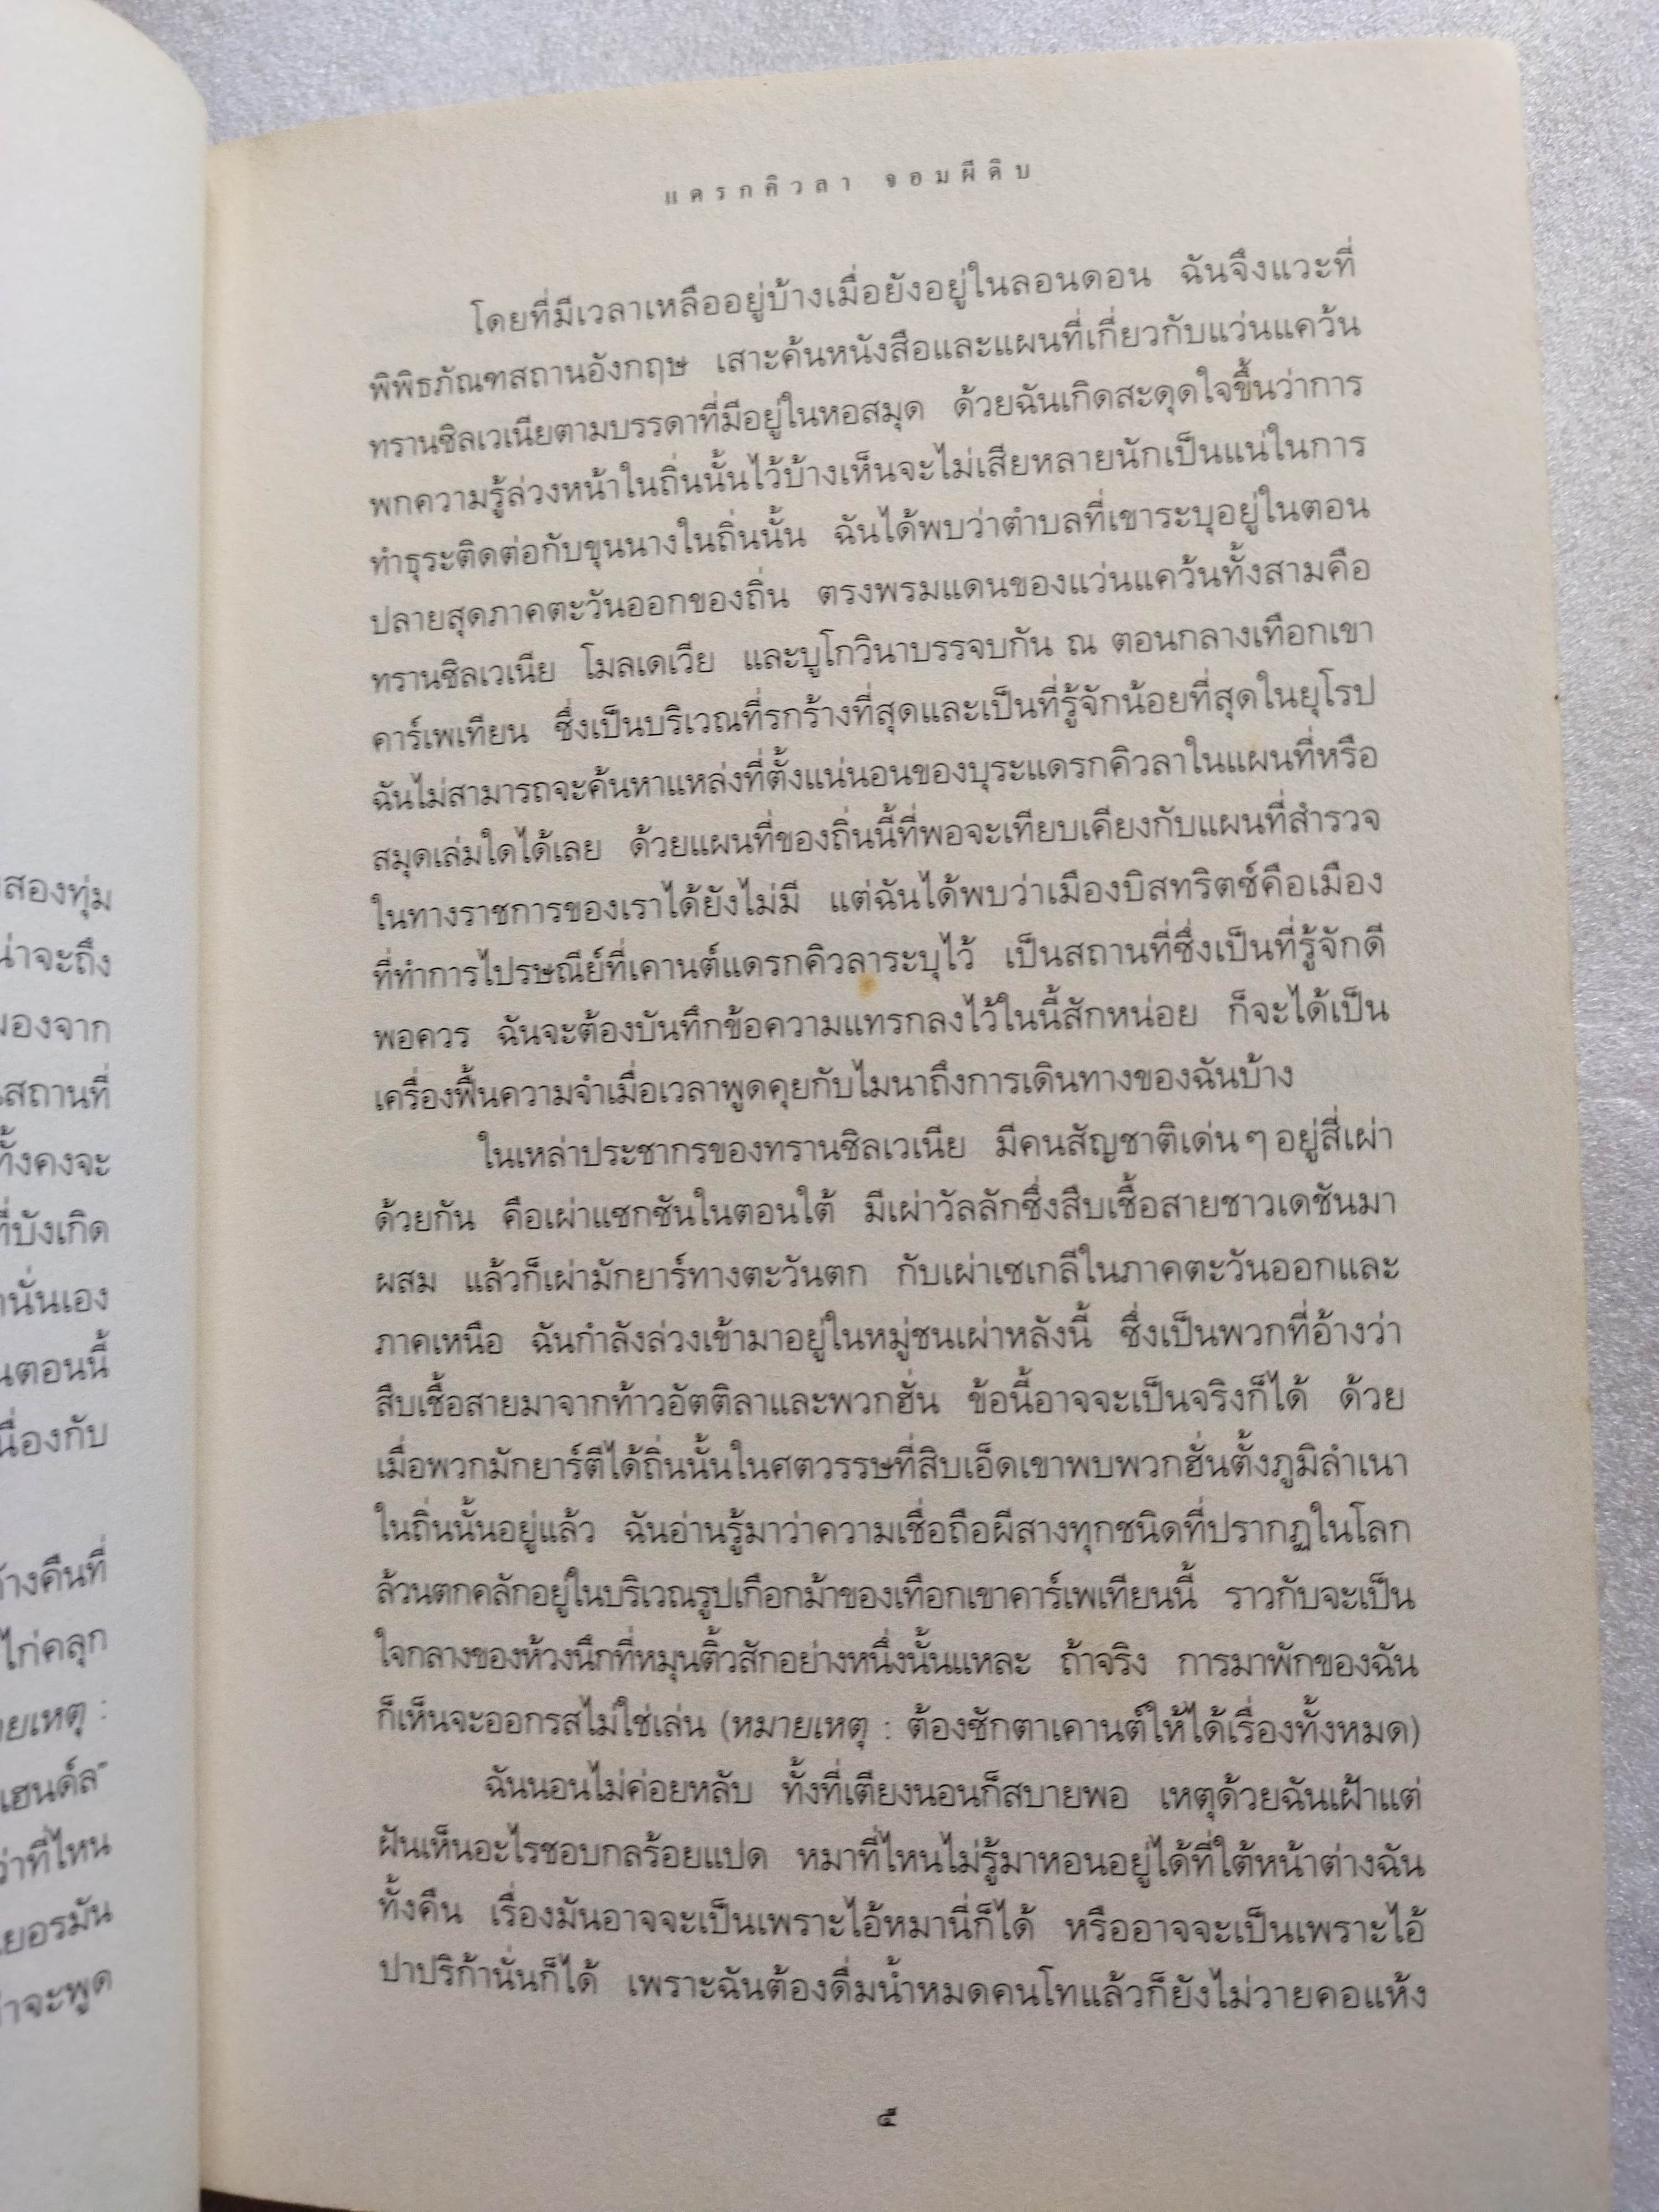 สองทุ่ม
น่าจะถึง
มองจาก
สถานที่
ทั้งคงจะ
ที่บังเกิด
นั่นเอง
ตอนนี้
เนื่องกับ
างคืนที่
ไก่คลุก
ายเหตุ :
เฮนด์ล"
ว่าที่ไหน
ยอรมัน
าจะพูด
แดรกคิวลา จอมผีดิบ
โดยที่มีเวลาเหลืออยู่บ้างเมื่อยังอยู่ในลอนดอน ฉันจึงแวะที่
พิพิธภัณฑสถานอังกฤษ เสาะค้นหนังสือและแผนที่เกี่ยวกับแว่นแคว้น
ทรานซิลเวเนียตามบรรดาที่มีอยู่ในหอสมุด ด้วยฉันเกิดสะดุดใจขึ้นว่าการ
พกความรู้ล่วงหน้าในถิ่นนั้นไว้บ้างเห็นจะไม่เสียหลายนักเป็นแน่ในการ
ทำธุระติดต่อกับขุนนางในถิ่นนั้น ฉันได้พบว่าตำบลที่เขาระบุอยู่ในตอน
ปลายสุดภาคตะวันออกของถิ่น ตรงพรมแดนของแว่นแคว้นทั้งสามคือ
ทรานซิลเวเนีย โมลเดเวีย และบูโกวินาบรรจบกัน ณ ตอนกลางเทือกเขา
คาร์เพเทียน ซึ่งเป็นบริเวณที่รกร้างที่สุดและเป็นที่รู้จักน้อยที่สุดในยุโรป
ฉันไม่สามารถจะค้นหาแหล่งที่ตั้งแน่นอนของบุระแดรกคิวลาในแผนที่หรือ
สมุดเล่มใดได้เลย ด้วยแผนที่ของถิ่นนี้ที่พอจะเทียบเคียงกับแผนที่สำรวจ
ในทางราชการของเราได้ยังไม่มี แต่ฉันได้พบว่าเมืองบิสทริตซ์คือเมือง
ที่ทำการไปรษณีย์ที่เคานต์แดรกคิวลาระบุไว้ เป็นสถานที่ซึ่งเป็นที่รู้จักดี
พอควร ฉันจะต้องบันทึกข้อความแทรกลงไว้ในนี้สักหน่อย ก็จะได้เป็น
เครื่องฟื้นความจำเมื่อเวลาพูดคุยกับไมนาถึงการเดินทางของฉันบ้าง
ในเหล่าประชากรของทรานซิลเวเนีย มีคนสัญชาติเด่นๆ อยู่สี่เผ่า
ด้วยกัน คือเผ่าแซกซันในตอนใต้ มีเผ่าวัลลักซึ่งสืบเชื้อสายชาวเดซันมา
ผสม แล้วก็เผ่ามักยาร์ทางตะวันตก กับเผ่าเซเกลีในภาคตะวันออกและ
ภาคเหนือ ฉันกำลังล่วงเข้ามาอยู่ในหมู่ชนเผ่าหลังนี้ ซึ่งเป็นพวกที่อ้างว่า
สืบเชื้อสายมาจากท้าวอัตติลาและพวกฮั่น ข้อนี้อาจจะเป็นจริงก็ได้ ด้วย
เมื่อพวกมักยาร์ตีได้ถิ่นนั้นในศตวรรษที่สิบเอ็ดเขาพบพวกฮั่นตั้งภูมิลำเนา
ในถิ่นนั้นอยู่แล้ว ฉันอ่านรู้มาว่าความเชื่อถือผีสางทุกชนิดที่ปรากฏในโลก
ล้วนตกคลักอยู่ในบริเวณรูปเกือกม้าของเทือกเขาคาร์เพเทียนนี้ ราวกับจะเป็น
ใจกลางของห้วงนึกที่หมุนติ้วสักอย่างหนึ่งนั้นแหละ ถ้าจริง การมาพักของฉัน
ก็เห็นจะออกรสไม่ใช่เล่น (หมายเหตุ : ต้องซักตาเคานต์ให้ได้เรื่องทั้งหมด)
ฉันนอนไม่ค่อยหลับ ทั้งที่เตียงนอนก็สบายพอ เหตุด้วยฉันเฝ้าแต่
ฝันเห็นอะไรชอบกลร้อยแปด หมาที่ไหนไม่รู้มาหอนอยู่ได้ที่ใต้หน้าต่างฉัน
ทั้งคืน เรื่องมันอาจจะเป็นเพราะไอ้หมานี่ก็ได้ หรืออาจจะเป็นเพราะไอ้
ปาปริก้านั่นก็ได้ เพราะฉันต้องดื่มน้ำหมดคนโทแล้วก็ยังไม่วายคอแห้ง
๕